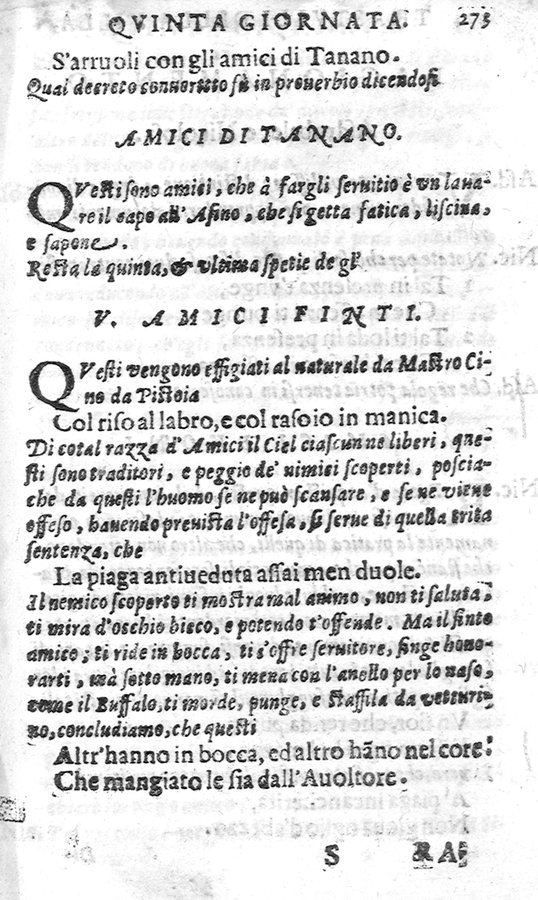 QVINTA GIORNATA. 273
S'arruoli con gli amici di Tanano.
Qual decreto conuertito fù in prouerbio dicendosi
AMICI DI TANANO.
QVesti sono amici, che à fargli seruitio è vn laua-
re il capo all'Asino, che si getta fatica, liscina,
e sapone.
Resta la quinta, & vltima spetie de gl'
V. AMICI FINTI.
QVesti vengono effigiati al naturale da Mastro Ci-
no da Pistoia
Col riso al labro, e col rasoio in manica.
Di cotal razza d'Amici il Ciel ciascun ne liberi, que-
sti sono traditori, e peggio de' nimici scoperti, poscia-
che da questi l'huomo se ne può scansare, e se ne viene
offeso, hauendo preuista l'offesa, si serue di quella trita
sentenza, che
La piaga antiueduta assai men duole.
Il nemico scoperto ti mostra mal animo, non ti saluta,
ti mira d'occhio bieco, e potendo t'offende. Ma il finto
amico; ti ride in bocca, ti s'offre seruitore, finge hono-
rarti, mà sotto mano, ti mena con l'anello per lo naso,
come il Buffalo, ti morde, punge, e staffila da vetturi-
no, concludiamo, che questi
Altr'hanno in bocca, ed altro hãno nel core:
Che mangiato le sia dall'Auoltore.
S RA-